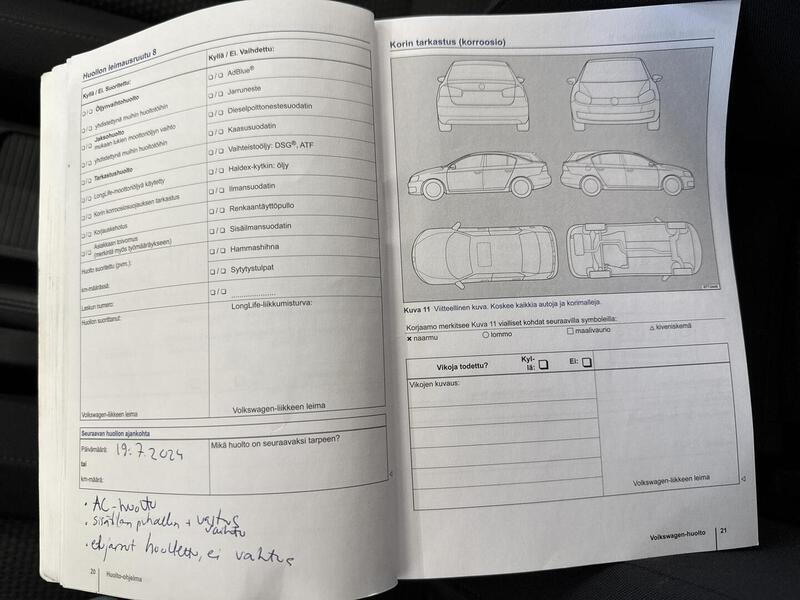 Huollon leimausruutu 8
Kyllä / Ei. Suoritettu:
❏ / ❏ Öljynvaihtohuolto
❏ / ❏ yhdistettynä muihin huoltotöihin
❏ / ❏ Jaksohuolto
mukaan lukien moottoriöljyn vaihto
❏ / ❏ yhdistettynä muihin huoltotöihin
❏ / ❏ Tarkastushuolto
❏ / ❏ LongLife-moottoriöljyä käytetty
❏ / ❏ Korin korroosiosuojauksen tarkastus
❏ / ❏ Korjauskehotus
❏ / ❏ Asiakkaan toivomus
(merkintä myös työmääräykseen)
Huolto suoritettu (pvm.):
km-määrässä:
Laskun numero:
Huollon suorittanut:
Volkswagen-liikkeen leima
Kyllä / Ei. Vaihdettu:
❏ / ❏ AdBlue®
❏ / ❏ Jarruneste
❏ / ❏ Dieselpolttonestesuodatin
❏ / ❏ Kaasusuodatin
❏ / ❏ Vaihteistoöljy: DSG®, ATF
❏ / ❏ Haldex-kytkin: öljy
❏ / ❏ Ilmansuodatin
❏ / ❏ Renkaantäyttöpullo
❏ / ❏ Sisäilmansuodatin
❏ / ❏ Hammashihna
❏ / ❏ Sytytystulpat
❏ / ❏ ....................
LongLife-liikkumisturva:
Volkswagen-liikkeen leima
Seuraavan huollon ajankohta
Päivämäärä: 19.7.2024
tai
km-määrä:
Mikä huolto on seuraavaksi tarpeen?
• AC-huolto
• sisätilan puhallin + vastus
vaihto
• etujarrut huollettu, ei vaihtoa
20 Huolto-ohjelma
Korin tarkastus (korroosio)
Kuva 11 Viitteellinen kuva. Koskee kaikkia autoja ja korimalleja.
Korjaamo merkitsee Kuva 11 vialliset kohdat seuraavilla symboleilla:
✖ naarmu ○ lommo □ maalivaurio △ kiveniskemä
Vikoja todettu? Kyl-
lä: ❏ Ei: ❏
Vikojen kuvaus:
Volkswagen-liikkeen leima
Volkswagen-huolto 21